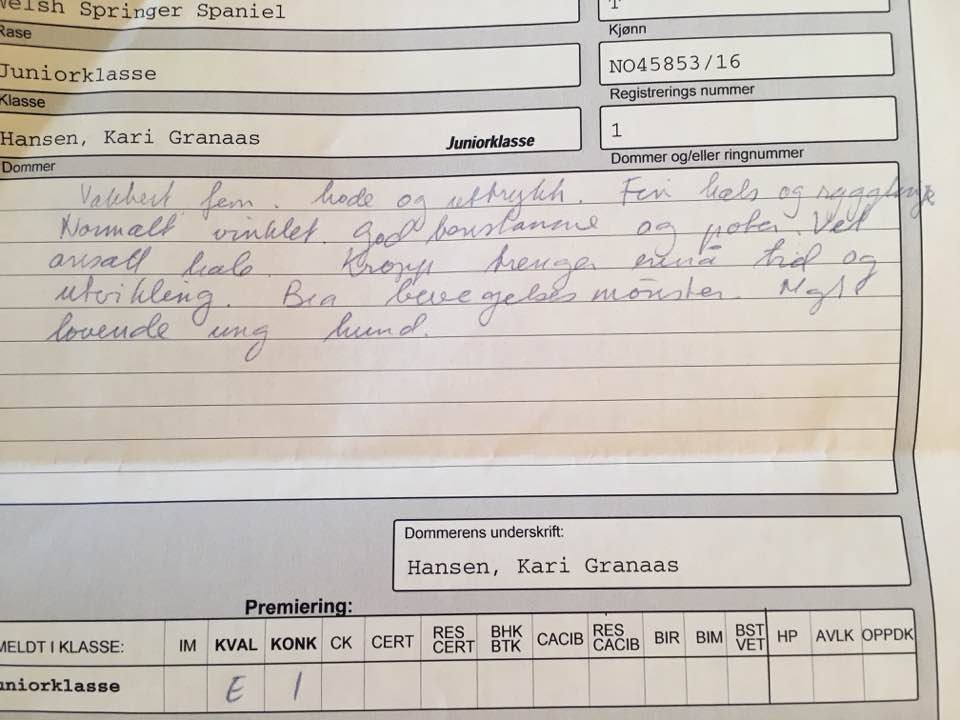 Welsh Springer Spaniel T
Rase Kjønn
Juniorklasse NO45853/16
Klasse Registrerings nummer
Hansen, Kari Granaas Juniorklasse 1
Dommer Dommer og/eller ringnummer
Vakkert fem. hode og uttrykk. Fin hals og rygglinje
Normalt vinklet. God benstamme og poter. Vel
ansatt hale. Kropp trenger ennå tid og
utvikling. Bra bevegelsesmönster. Mgt
lovende ung hund.
Dommerens underskrift:
Hansen, Kari Granaas
Premiering:
MELDT I KLASSE: IM KVAL KONK CK CERT RES CERT BHK BTK CACIB RES CACIB BIR BIM BST VET HP AVLK OPPDK
uniorklasse E 1